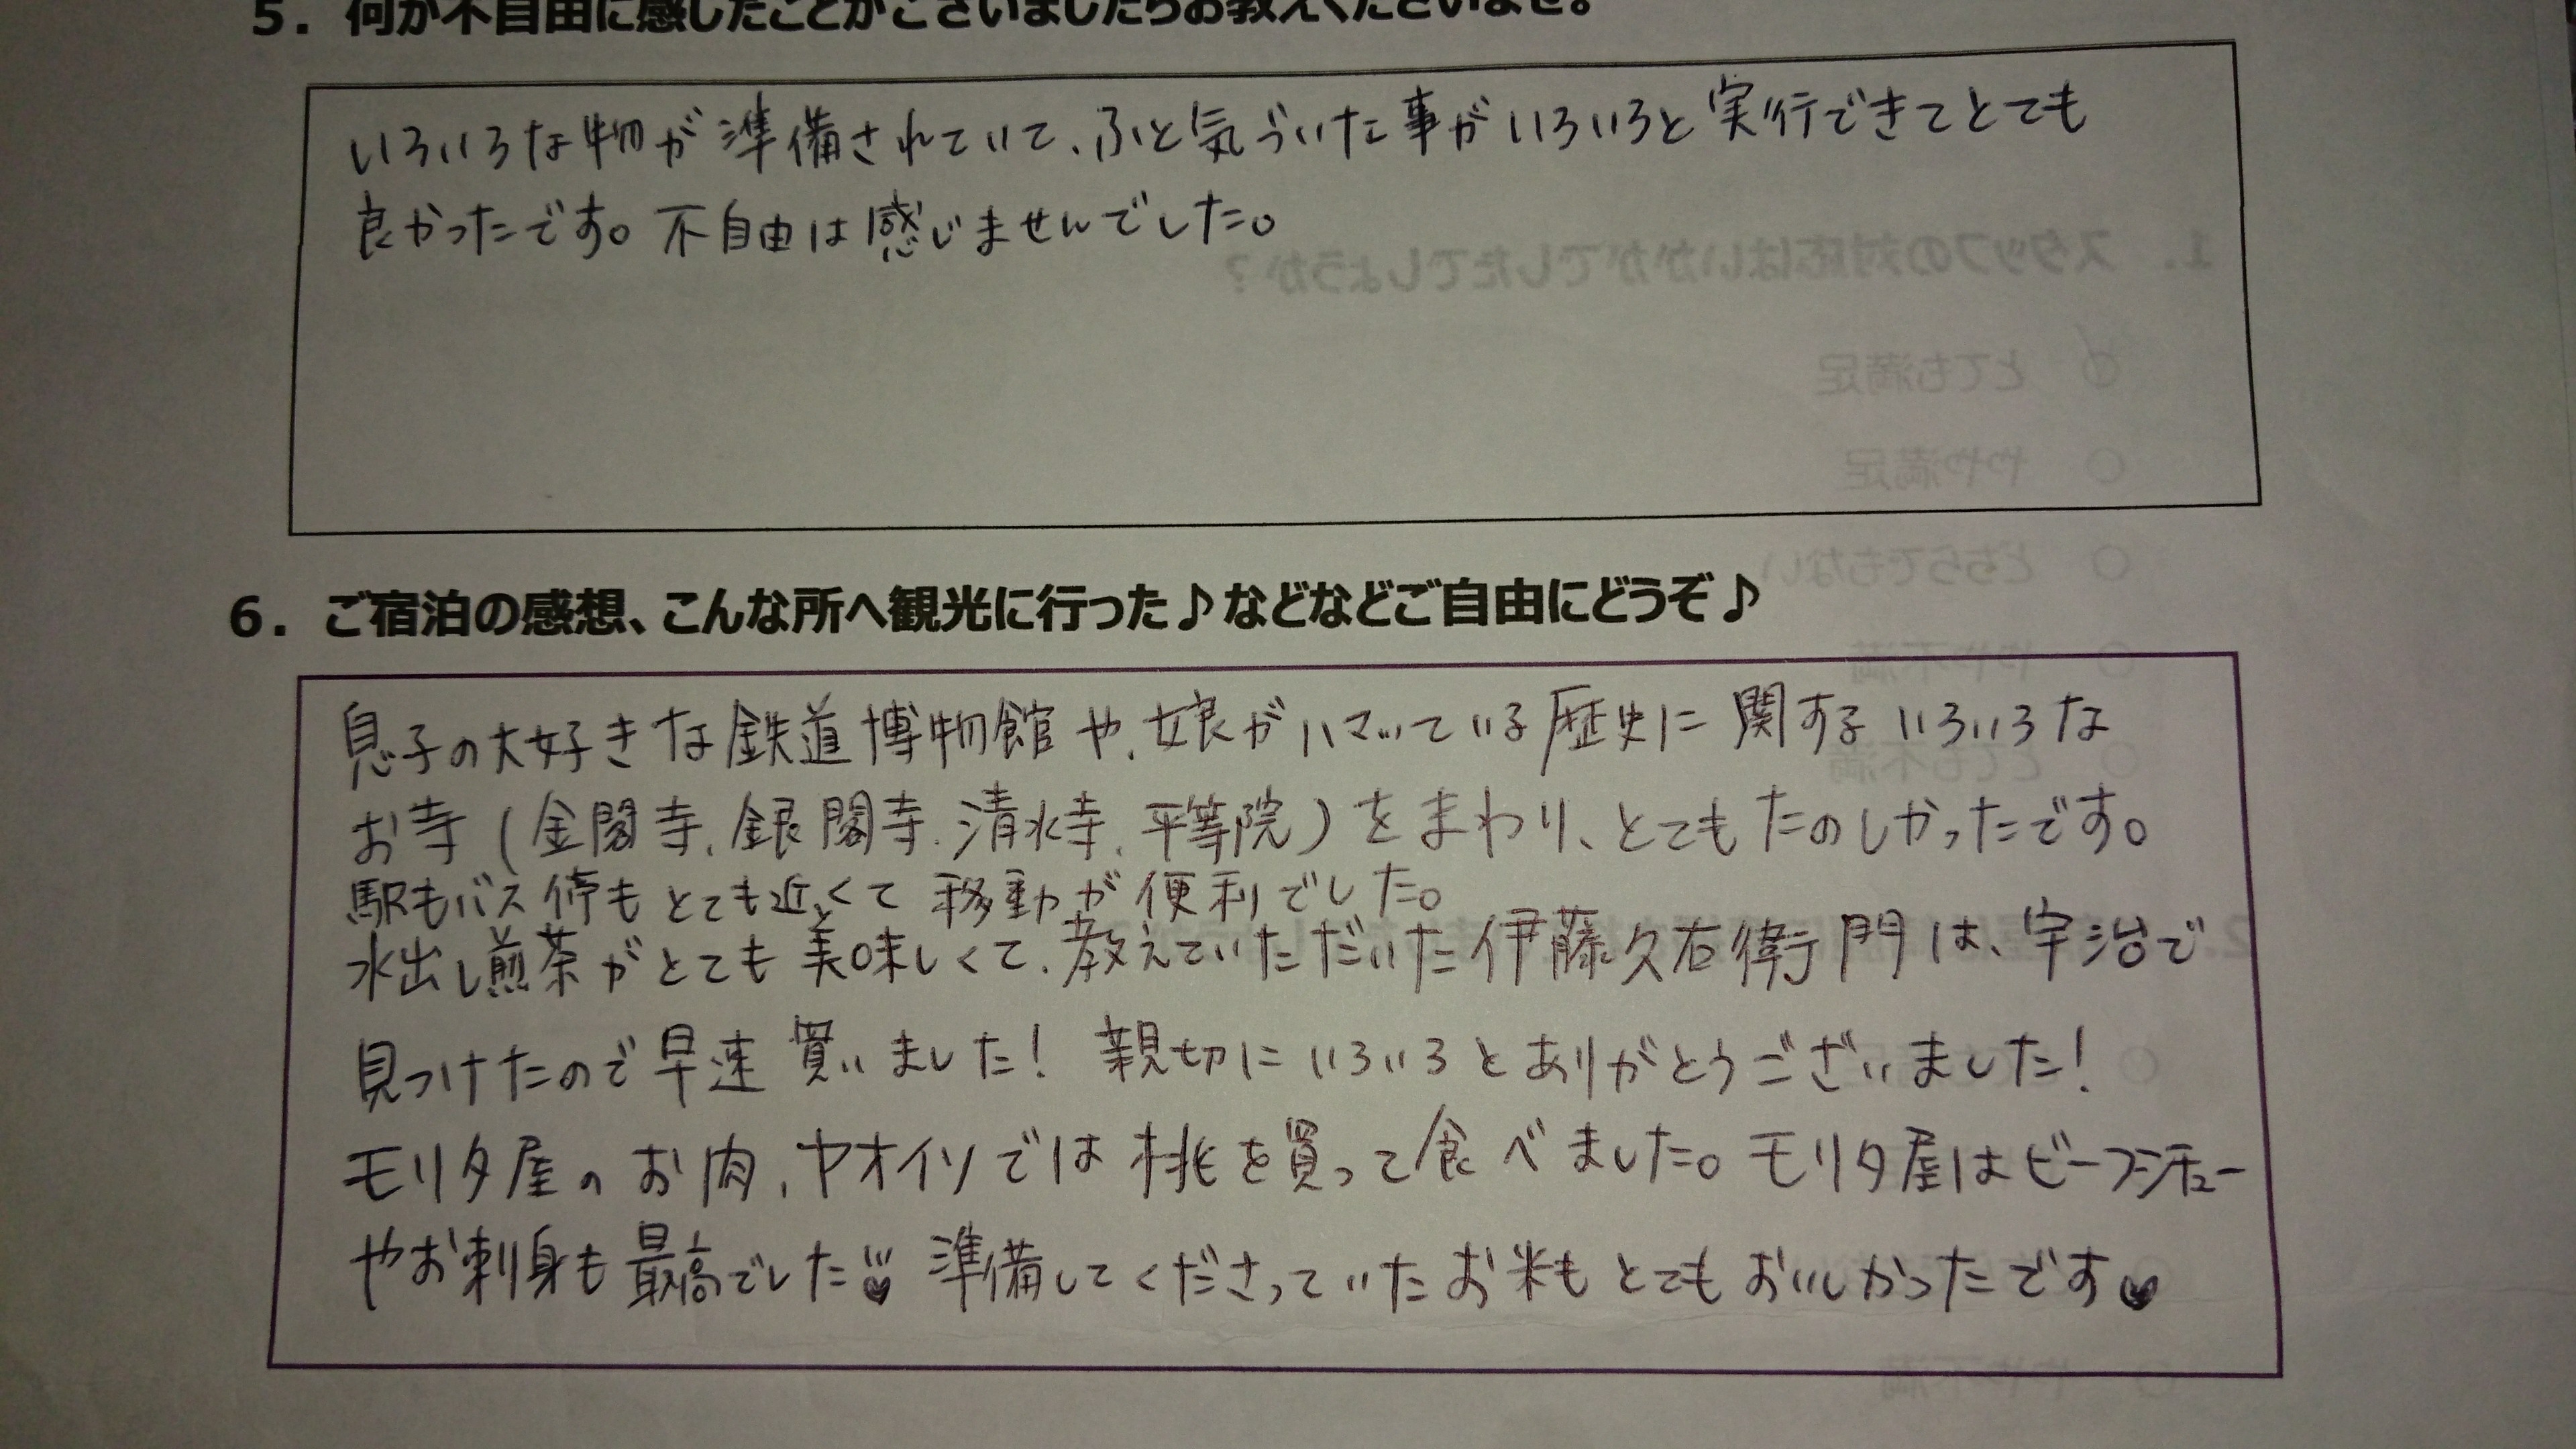 5. 何か不自由に感じたことがございましたらお教えくださいませ。
いろいろな物が準備されていて、ふと気づいた事がいろいろと実行できてとても
良かったです。不自由は感じませんでした。
6. ご宿泊の感想、こんな所へ観光に行った♪などなどご自由にどうぞ♪
息子の大好きな鉄道博物館や、娘がハマっている歴史に関するいろいろな
お寺(金閣寺、銀閣寺、清水寺、平等院)をまわり、とてもたのしかったです。
駅もバス停もとても近くて移動が便利でした。
水出し煎茶がとても美味しくて、教えていただいた伊藤久右衛門は、宇治で
見つけたので早速買いました! 親切にいろいろとありがとうございました!
モリタ屋のお肉、ヤオイソでは桃を買って食べました。モリタ屋はビーフシチュー
やお刺身も最高でした!!♥ 準備してくださっていたお米もとてもおいしかったです♥
1. スタッフの対応はいかがでしたでしょうか?
とても満足
やや満足
どちらでもない
やや不満
とても不満
やや不満